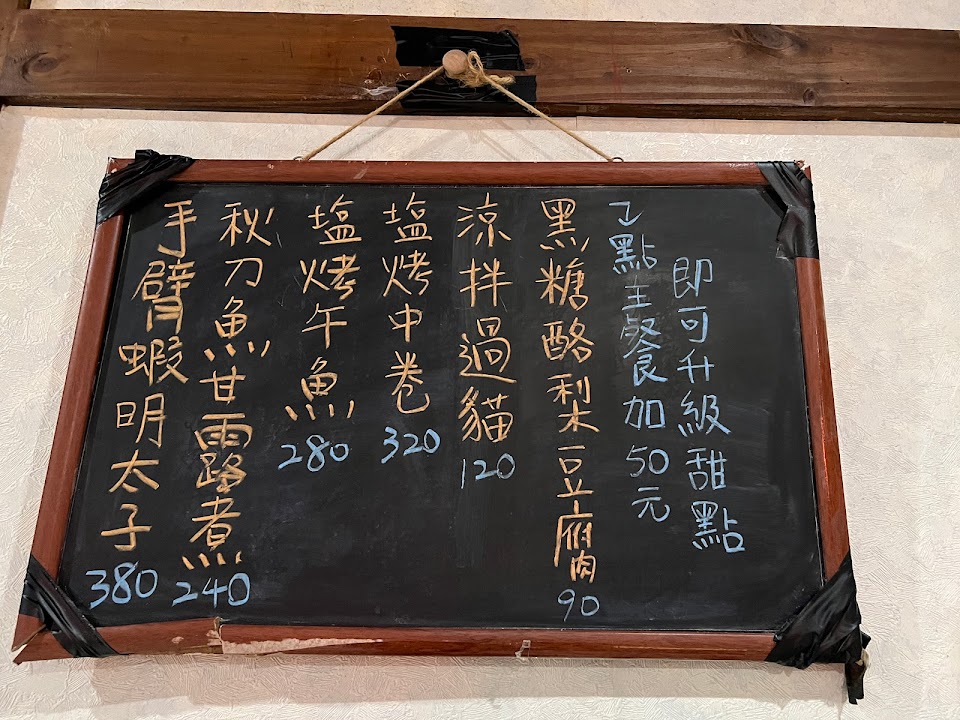 手臂蝦明太子 380
秋刀魚甘露煮 240
塩烤午魚 280
塩烤中卷 320
涼拌過貓 120
黑糖酪梨豆腐 90
點主餐加50元
即可升級甜點